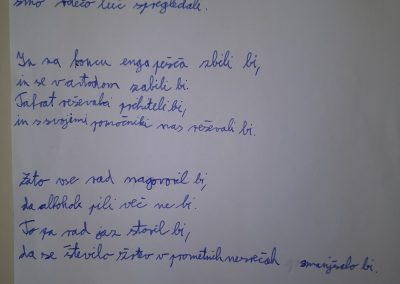 smo rdečo luč spregledali.
In na koncu enga pešca zbili bi,
in se v avtodom zabili bi.
Takrat reševalci prihiteli bi,
in s svojimi pomočniki nas reševali bi.
Zato vse rad nagovoril bi,
da alkohola pili več ne bi.
To pa rad jaz storil bi,
da se število žrtev v prometnih nesrečah zmanjšalo bi.